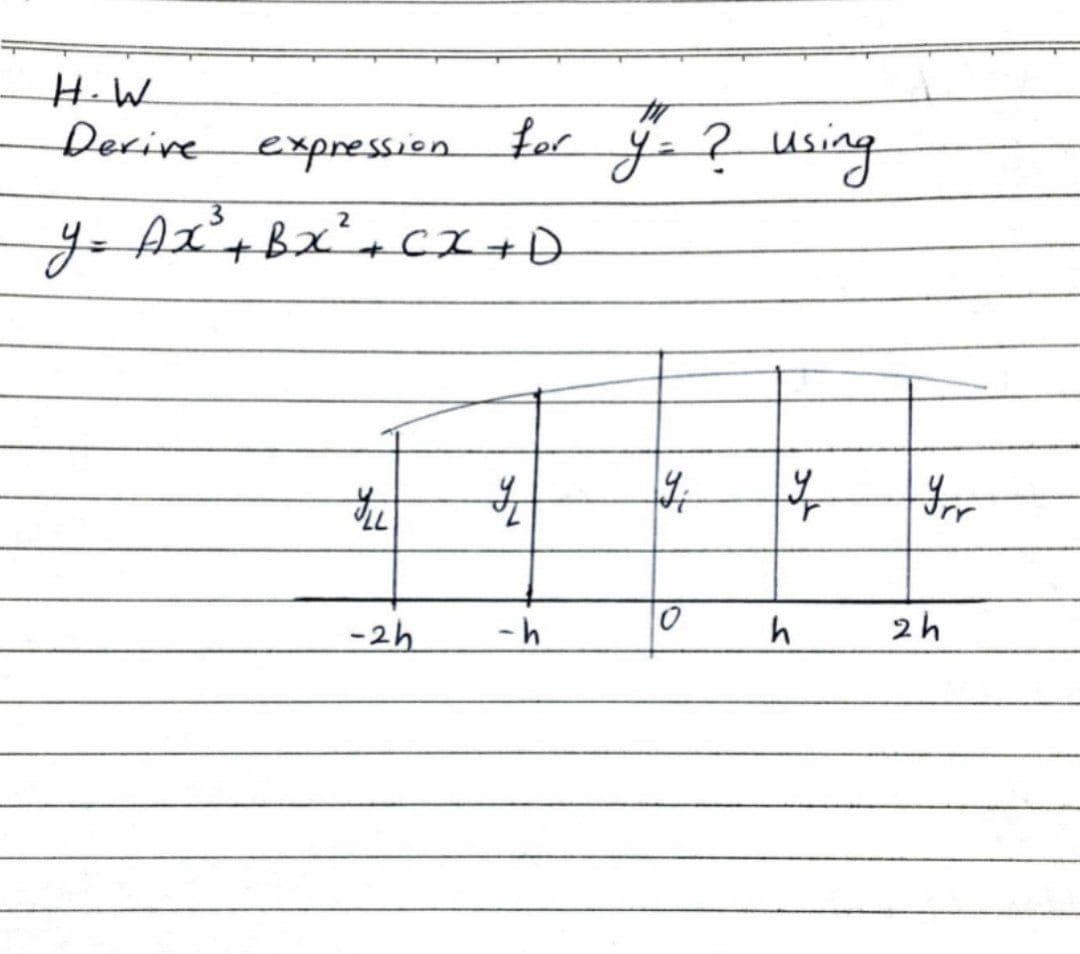 H.W
Derive expression for y'''= ? using
y= Ax³+Bx²+Cx+D
y_LL y_L y_i y_r y_rr
-2h -h 0 h 2h